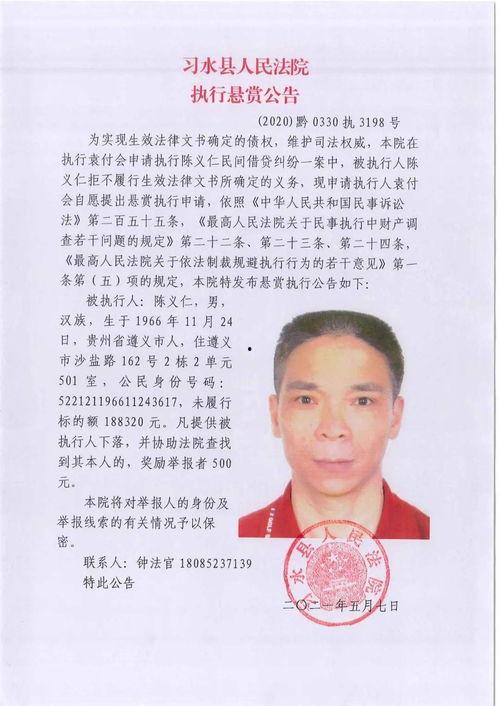 习水县人民法院
执行悬赏公告
(2020)黔 0330 执 3198 号
为实现生效法律文书确定的债权，维护司法权威，本院在
执行袁付会申请执行陈义仁民间借贷纠纷一案中，被执行人陈
义仁拒不履行生效法律文书所确定的义务，现申请执行人袁付
会自愿提出悬赏执行申请，依照《中华人民共和国民事诉讼
法》第二百五十五条，《最高人民法院关于民事执行中财产调
查若干问题的规定》第二十二条、第二十三条、第二十四条，
《最高人民法院关于依法制裁规避执行行为的若干意见》第一
条第（五）项的规定，本院特发布悬赏执行公告如下：
被执行人：陈义仁，男，
汉族，生于 1966 年 11 月 24
日，贵州省遵义市人，住遵义
市沙盐路 162 号 2 栋 2 单元
501 室，公民身份号码：
522121196611243617，未履行
标的额 188320 元。凡提供被
执行人下落，并协助法院查找
到其本人的，奖励举报者 500
元。
本院将对举报人的身份及
举报线索的有关情况予以保
密。
联系人：钟法官 18085237139
特此公告
习水县人民法院
二〇二一年五月七日